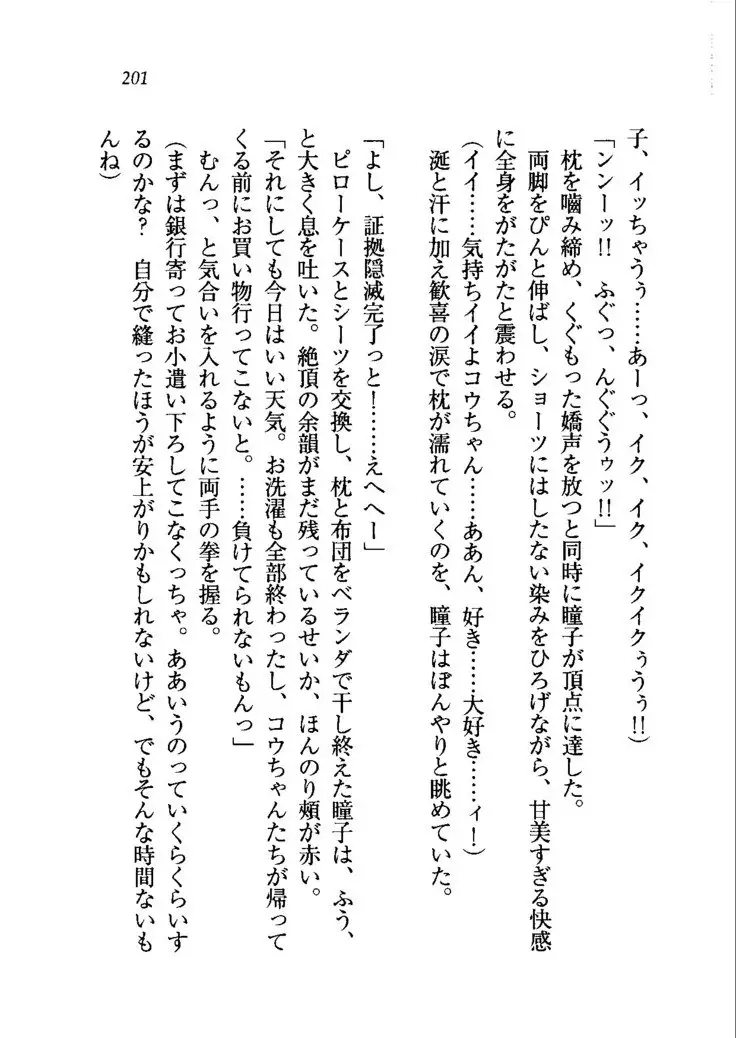 201
子、イッちゃうぅ……あーっ、イク、イク、イクイクぅうぅ!!）
「ンンーッ!!　ふぐっ、んぐぐうゥッ!!」
　枕を嚙み締め、くぐもった嬌声を放つと同時に瞳子が頂点に達した。
　両脚をぴんと伸ばし、ショーツにはしたない染みをひろげながら、甘美すぎる快感
に全身をがたがたと震わせる。
（イイ……気持ちイイよコウちゃん……ああん、好き……大好き……ィ！）
　涎と汗に加え歓喜の涙で枕が濡れていくのを、瞳子はぼんやりと眺めていた。
「よし、証拠隠滅完了っと！……えへへー」
　ピローケースとシーツを交換し、枕と布団をベランダで干し終えた瞳子は、ふう、
と大きく息を吐いた。絶頂の余韻がまだ残っているせいか、ほんのり頰が赤い。
「それにしても今日はいい天気。お洗濯も全部終わったし、コウちゃんたちが帰って
くる前にお買い物行ってこないと。……負けてられないもんっ」
　むんっ、と気合いを入れるように両手の拳を握る。
（まずは銀行寄ってお小遣い下ろしてこなくっちゃ。ああいうのっていくらくらいす
るのかな？　自分で縫ったほうが安上がりかもしれないけど、でもそんな時間ないも
んね）